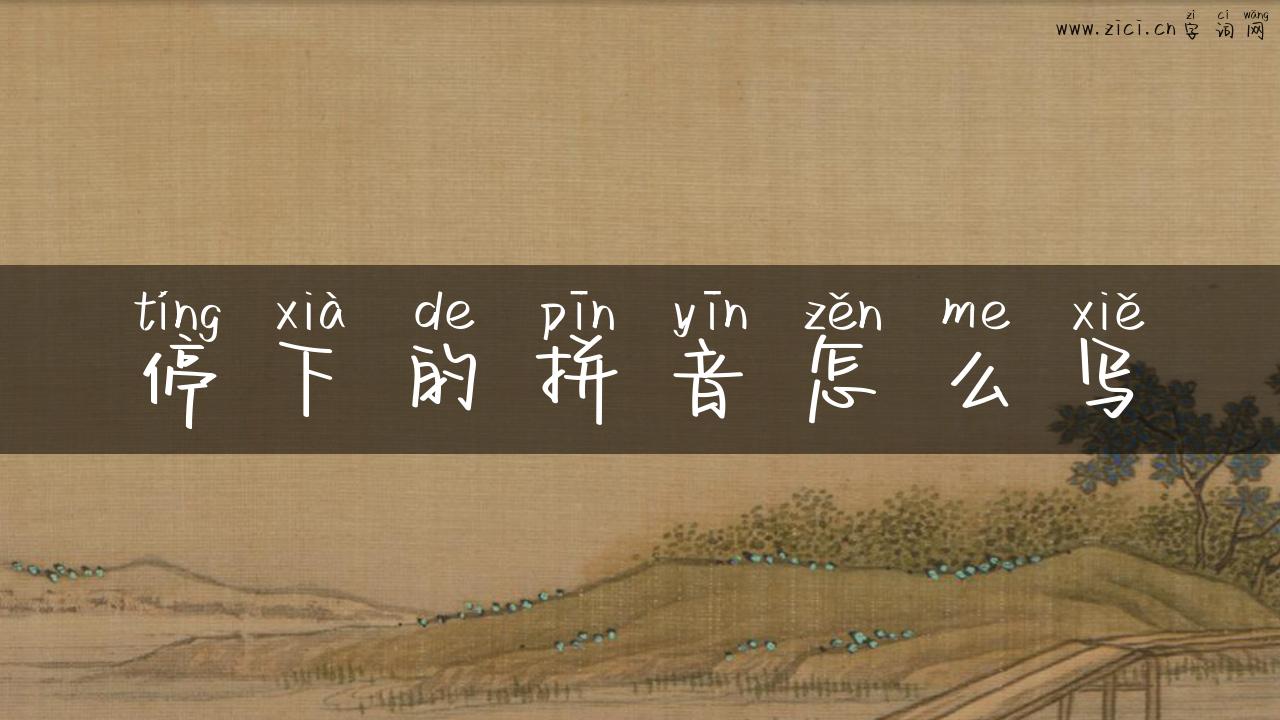 zì cí wǎng
www.zici.cn 字词网
tíng xià de pīn yīn zěn me xiě
停下的拼音怎么写